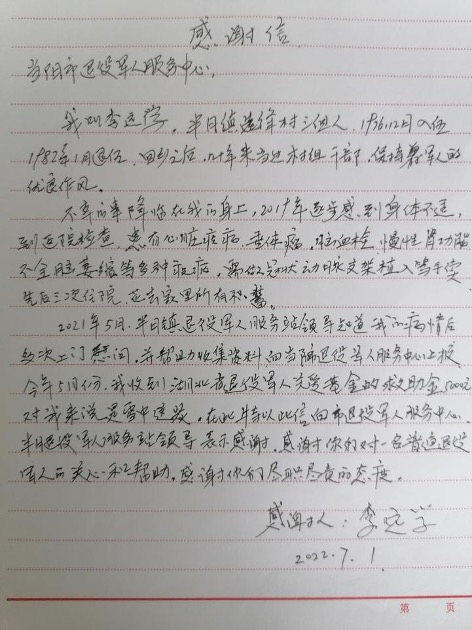 感谢信
当阳市退役军人服务中心,
我叫李远学，半月镇 村三组人，1976.12月入伍
1982年1月退伍，回乡之后，几十年来当过村组干部，保持着军人的
优良作风。
不幸的事降临在我的身上，2019年逐步感到身体不适，
到医院检查，患有心脏 病，垂体瘤，脑血栓，慢性肾功能
不全 萎缩等多种 病，需做冠状动脉支架植入等手术
先后三次住院，花去家里所有积蓄。
2021年5月，半月镇退役军人服务站领导知道我的病情后
多次上门慰问，并帮助收集资料向当阳退役军人服务中心上报
今年5月份，我收到湖北省退役军人关爱基金的救助金5000元
对我来说是雪中送炭，在此特以此信向市退役军人服务中心，
半月退役军人服务站领导表示感谢，感谢你们对一名普通退役
军人的关心和帮助，感谢你们尽职尽责的态度。
感谢人：李远学
2022.7.1
第 页